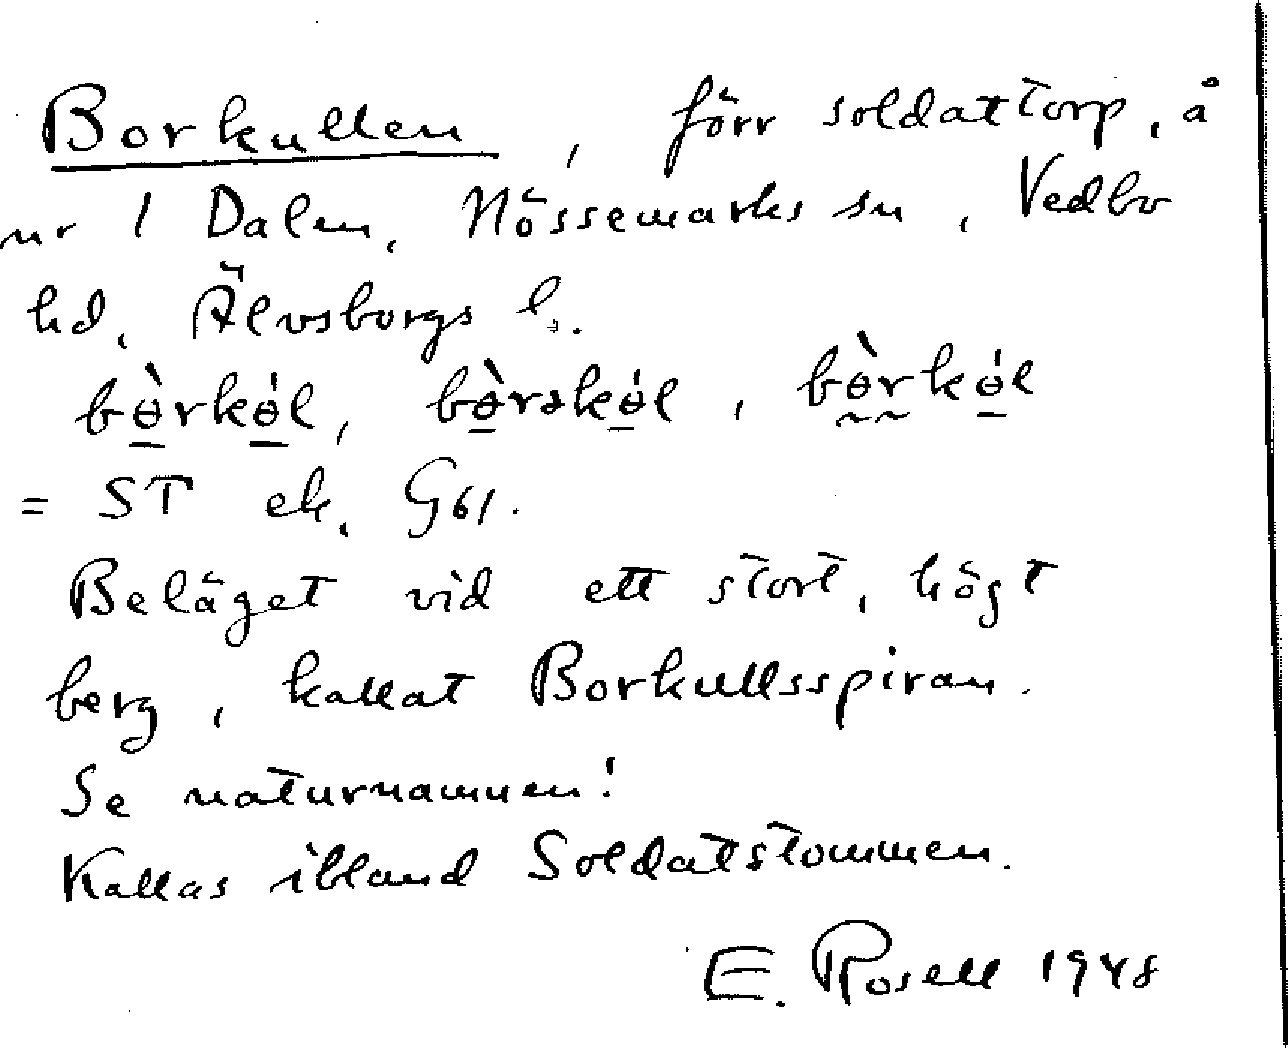 Borkullen, förr soldattorp, å
nr 1 Dalen, Nössemarks sn, Vedbo
hd, Älvsborgs l.
bɵ̀rkɵ́l, bɵ̀rəkɵ́l, bɵ̀rkɵ́l
= ST ek. G61.
Beläget vid ett stort, högt
berg, kallat Borkullsspiran.
Se naturnamnen!
Kallas ibland Soldatstommen.
E. Rosell 1948